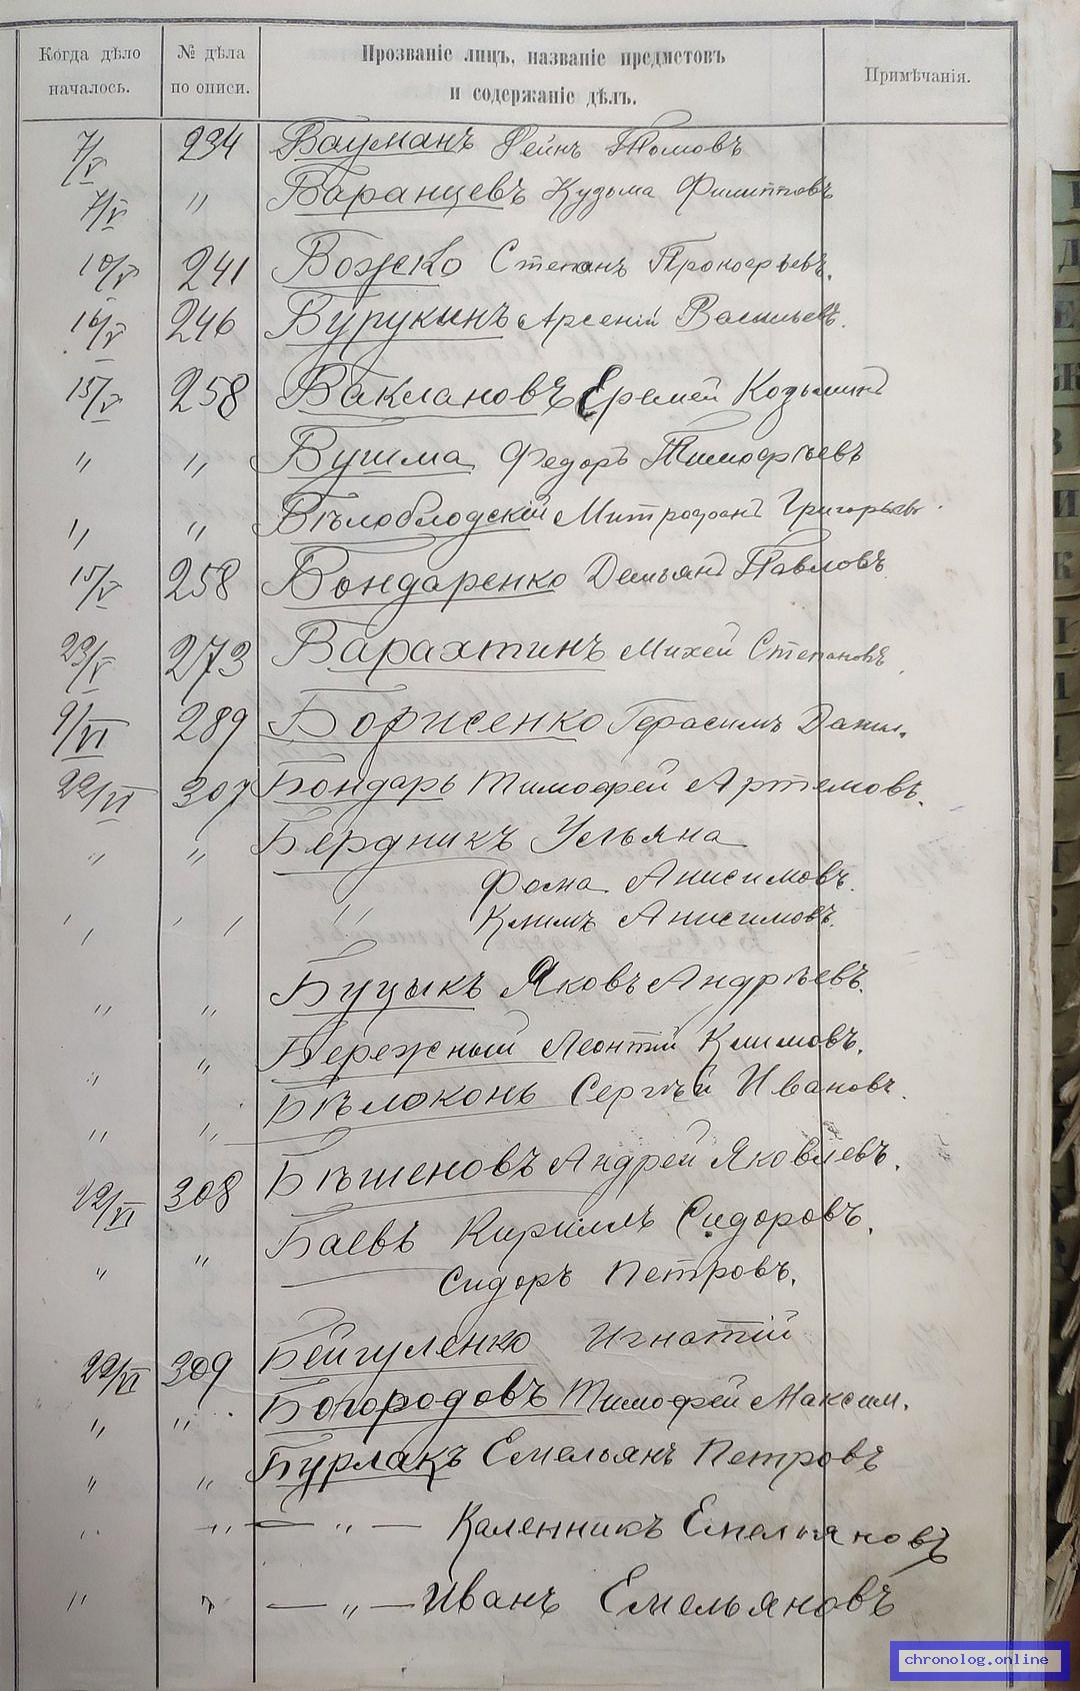 Когда дѣло началось. № дѣла по описи. Прозваніе лицъ, названіе предметовъ и содержаніе дѣлъ. Примѣчанія.
7/V 234 Бауманъ Рейнъ Томовъ
7/V " Баранцевъ Кузьма Филипповъ
10/V 241 Божко Степанъ Прокофьевъ.
16/V 246 Бурукинъ Арсеній Васильевъ.
15/V 258 Баклановъ Еремей Козьминъ
" " Бушма Федоръ Тимофѣевъ
" " Бѣлоблодскій Митрофанъ Григорьевъ.
15/V 258 Бондаренко Демьянъ Павловъ
23/V 273 Барахтинъ Михей Степановъ
9/VI 289 Борисенко Герасимъ Данил.
22/VI 307 Бондарь Тимофей Артемовъ.
" " Бердникъ Ульяна
Фома Анисимовъ.
" Климъ Анисимовъ.
" " Буцыкъ Яковъ Андрѣевъ.
" " Бережный Леонтій Климовъ.
" " Бѣлоконь Сергѣй Ивановъ.
22/VI 308 Бѣшеновъ Андрей Яковлевъ.
" " Баевъ Кириллъ Сидоровъ.
Сидоръ Петровъ.
22/VI 309 Бейгуленко Игнатій
" " Богородовъ Тимофей Максим.
" " Бурлакъ Емельянъ Петровъ
" " — " — Каленникъ Емельяновъ
" " — " — Иванъ Емельяновъ
chronolog.online